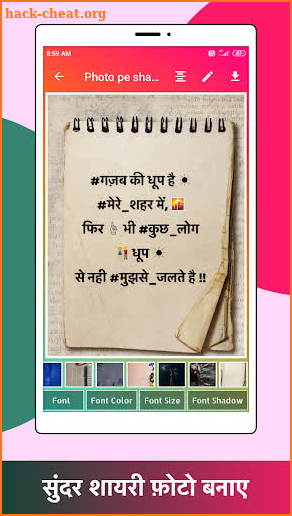 hack-cheat.org
8:59 AM
Photo pe sha...
#गज़ब की धूप है ☀
#मेरे_शहर में, 🌇
फिर ☝ भी #कुछ_लोग
👫 धूप ☀
से नही #मुझसे_जलते है !!
Font
Font Color
Font Size
Font Shadow
सुंदर शायरी फ़ोटो बनाए